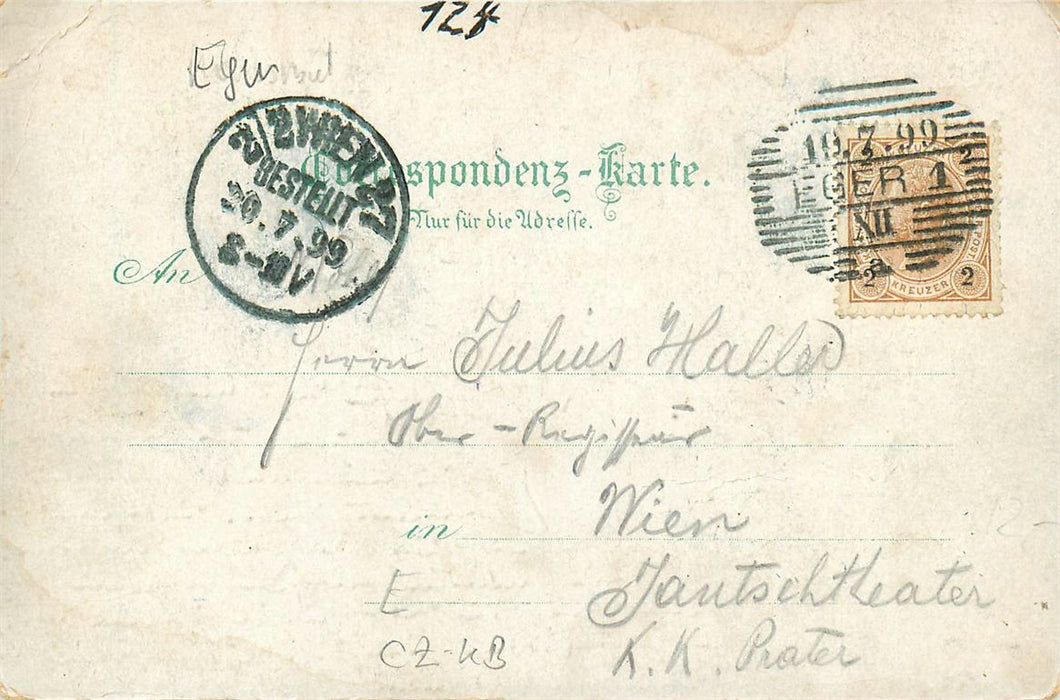 12
2/2 WIEN 2/1
BESTELLT
20.7.99
8-
Correspondenz-Karte.
Nur für die Adresse.
19.7.99
EGER 1
XII
a
2
2 KREUZER 2
An
Herrn Julius Haller
Ober-Registrar
in Wien
Jantschtheater
K. K. Prater
E
CZ-KB